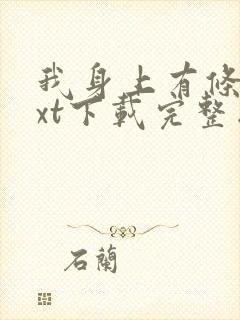 我身上有條
xt下載完整
石蘭